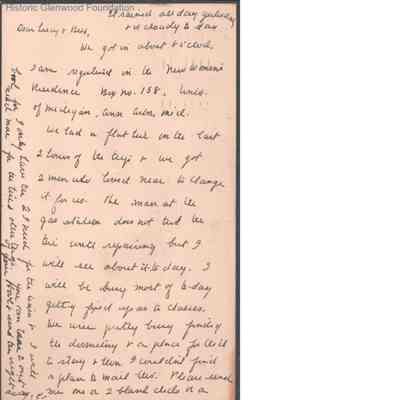 Historic Glenwood Foundation
It rained all day yesterday
& is cloudy to day
Dear Lucy & Bess,
We got in about 8 o'clock.
I am registered in the New Women's
Residence Box no. 158, Univ.
of Michigan, Ann Arbor, Mich.
We had a flat tire on the last
2 hours of the trip & we got
2 men who lived near to change
it for us. The man at the
gas station does not think the
tire worth repairing but I
will see about it to day. I
will be busy most of to-day
getting fixed up as to classes.
We were pretty busy finding
the dormitory & a place for
to stay & then I couldn't find
a place to mail this. Please send
me one or 2 blank checks or a
book for I only have the 2 I need for the union & I will
need more for the